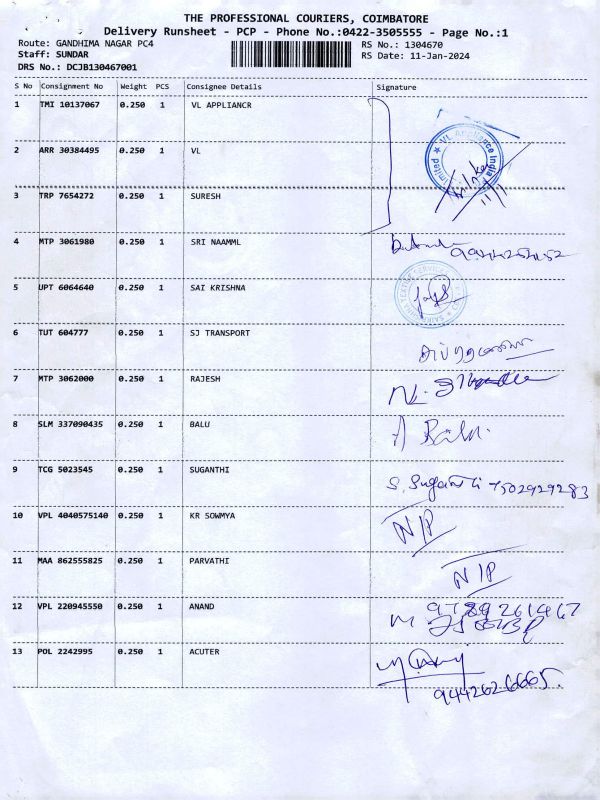 THE PROFESSIONAL COURIERS, COIMBATORE
Delivery Runsheet - PCP - Phone No.:0422-3505555 - Page No.:1
Route: GANDHIMA NAGAR PC4 RS No.: 1304670
Staff: SUNDAR RS Date: 11-Jan-2024
DRS No.: DCJB130467001
S No Consignment No Weight PCS Consignee Details Signature
1 TMI 10137067 0.250 1 VL APPLIANCR
2 ARR 30384495 0.250 1 VL
VL Appliance India limited
11/1
3 TRP 7654272 0.250 1 SURESH
4 MTP 3061980 0.250 1 SRI NAAMML
5 UPT 6064640 0.250 1 SAI KRISHNA
6 TUT 604777 0.250 1 SJ TRANSPORT
7 MTP 3062000 0.250 1 RAJESH
8 SLM 337090435 0.250 1 BALU
A Balu.
9 TCG 5023545 0.250 1 SUGANTHI
S. Suganthi 7502929283
10 VPL 4040575140 0.250 1 KR SOWMYA
N/P
11 MAA 862555825 0.250 1 PARVATHI
N/P
12 VPL 220945550 0.250 1 ANAND
9789261467
13 POL 2242995 0.250 1 ACUTER
9442626665.